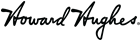 Howard Hughes.